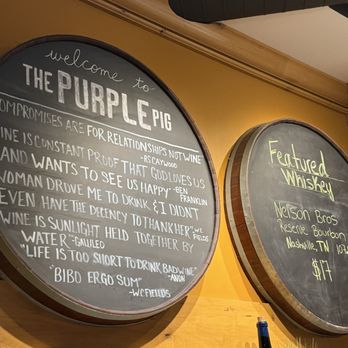 welcome to
THE PURPLE PIG
COMPROMISES ARE FOR RELATIONSHIPS NOT WINE
-RS CAYWOOD
WINE IS CONSTANT PROOF THAT GOD LOVES US
AND WANTS TO SEE US HAPPY -BEN FRANKLIN
WOMAN DROVE ME TO DRINK & I DIDN'T
EVEN HAVE THE DECENCY TO THANK HER" -WC FIELDS
WINE IS SUNLIGHT HELD TOGETHER BY
WATER" -GALILEO
"LIFE IS TOO SHORT TO DRINK BAD WINE"
-ANON
"BIBO ERGO SUM"
-WC FIELDS
Featured
Whiskey
Nelson Bros
Reserve Bourbon
Nashville, TN
$17